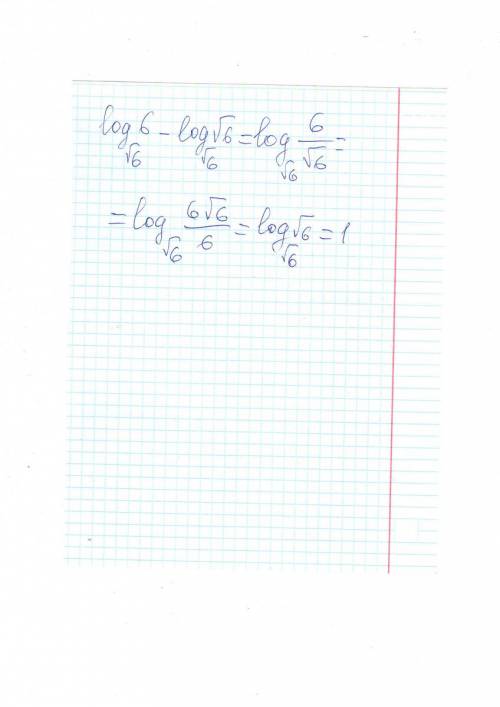 log_√6 6 − log_√6 √6 = log_√6 6/√6 =
= log_√6 6√6/6 = log_√6 √6 = 1